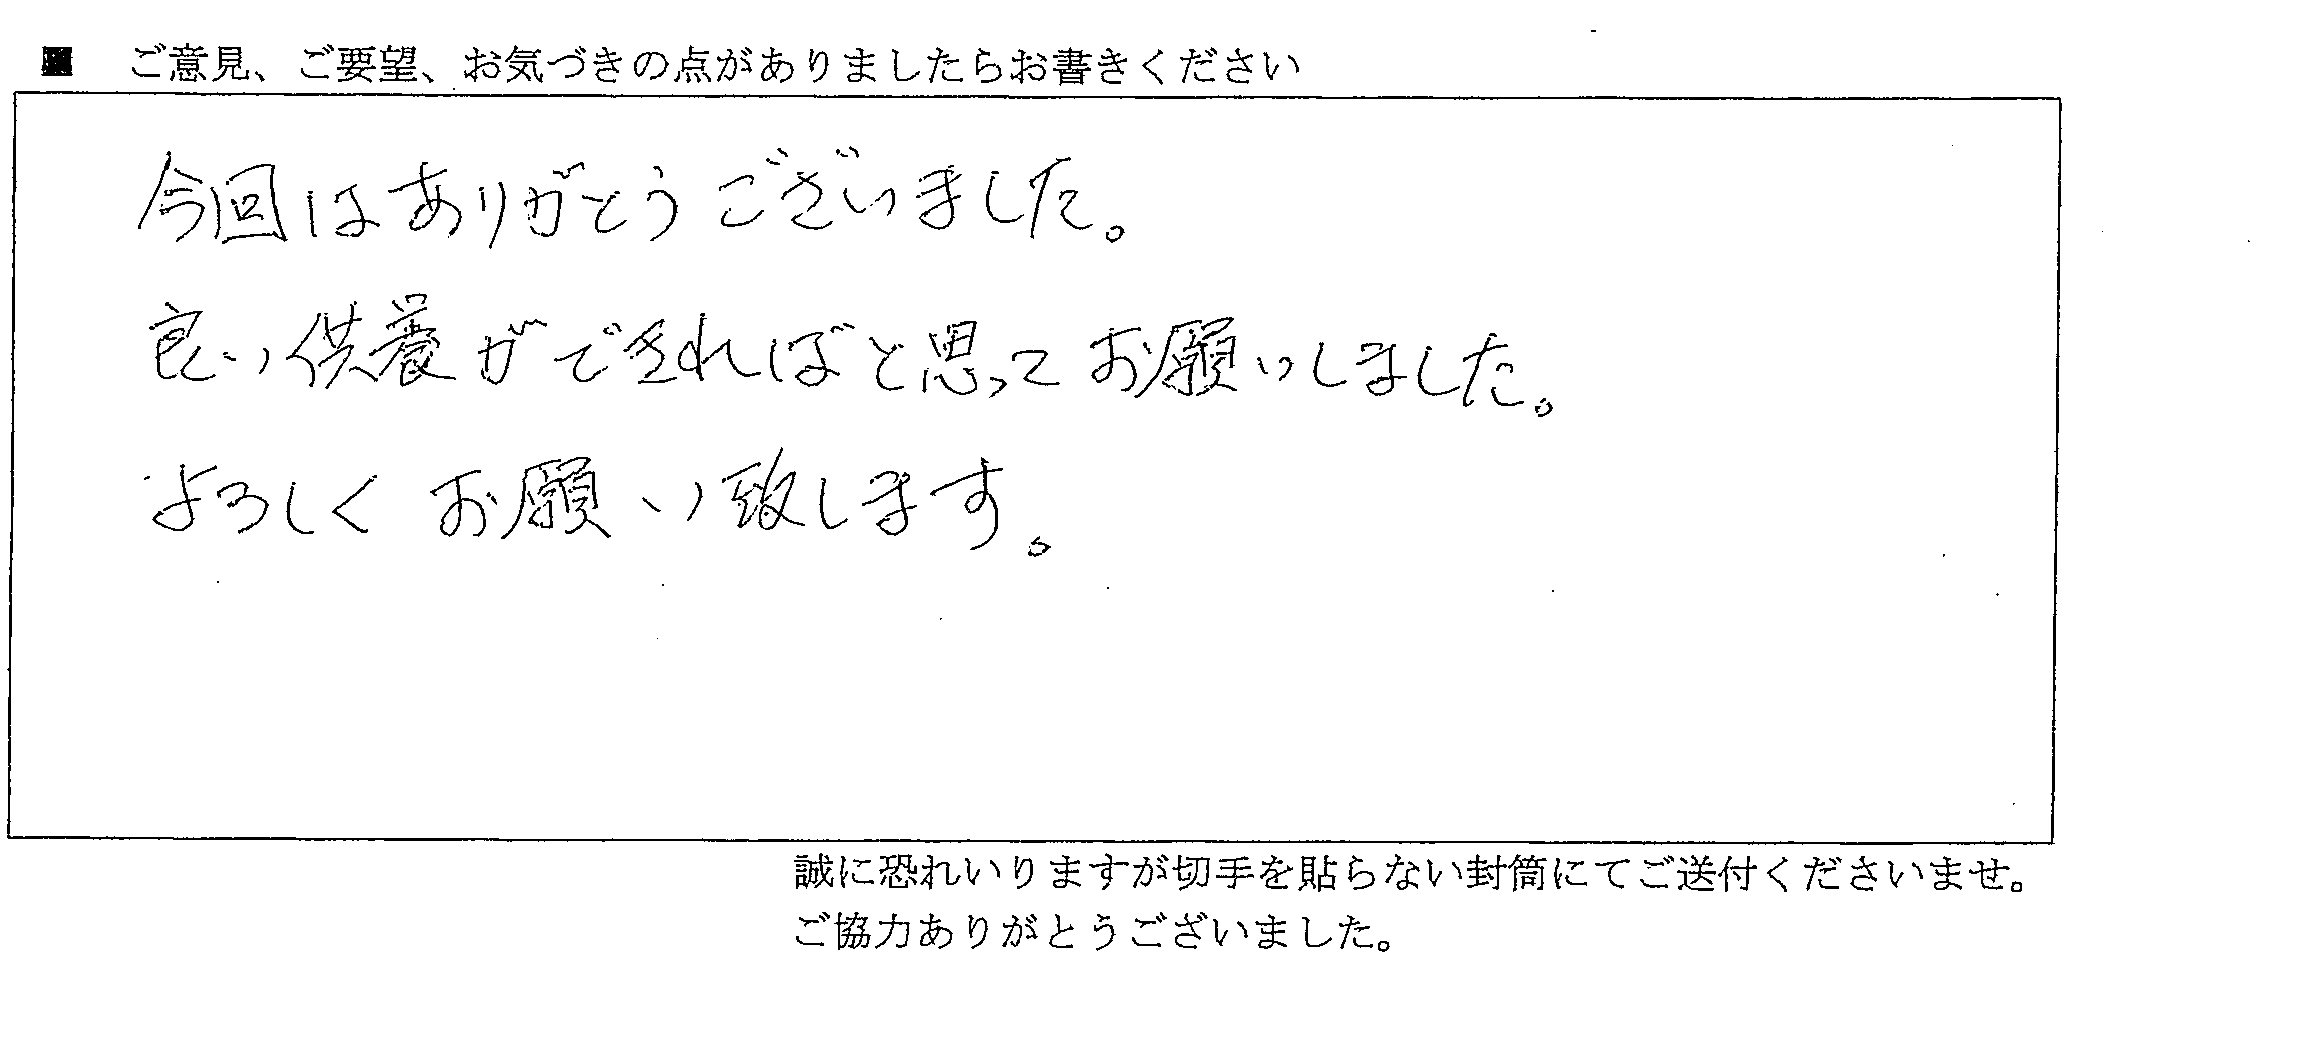 ■ ご意見、ご要望、お気づきの点がありましたらお書きください
今回はありがとうございました。
良い供養ができればと思ってお願いしました。
よろしくお願い致します。
誠に恐れいりますが切手を貼らない封筒にてご送付くださいませ。
ご協力ありがとうございました。